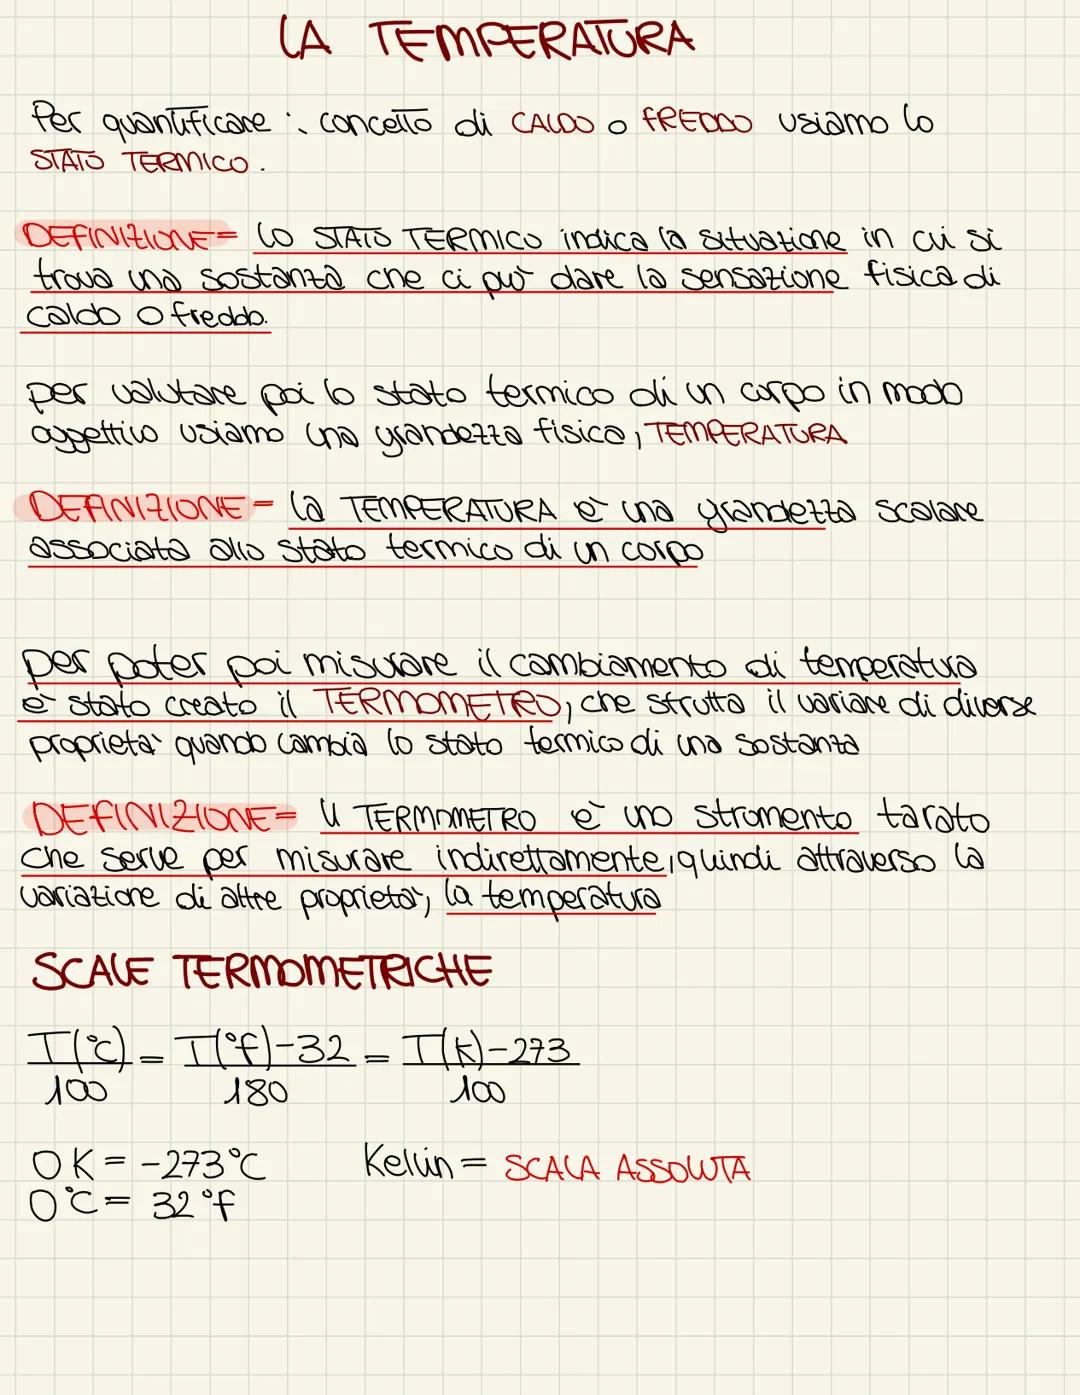 LA TEMPERATURA
Per quantificare i concetto di CALDO o FREDDO usiamo lo
STATO TERMICO.
DEFINIZIONE= LO STATO TERMICO indica la situazione in cui si
trova una sostanza che ci può dare la sensazione fisica di
caldo o freddo.
per valutare poi lo stato termico di un corpo in modo
oggettivo usiamo una grandezza fisica, TEMPERATURA
DEFINIZIONE= la TEMPERATURA è una grandezza scalare
associata allo stato termico di un corpo
per poter poi misurare il cambiamento di temperatura
è stato creato il TERMOMETRO, che sfrutta il variare di diverse
proprietà quando cambia lo stato termico di una sostanza
DEFINIZIONE= il TERMOMETRO è uno strumento tarato
che serve per misurare indirettamente, quindi attraverso la
variazione di altre proprietà, la temperatura
SCALE TERMOMETRICHE
T(°C)/100 = T(°F)-32/180 = T(K)-273/100
0 K = -273°C Kelvin = SCALA ASSOLUTA
0°C = 32°F